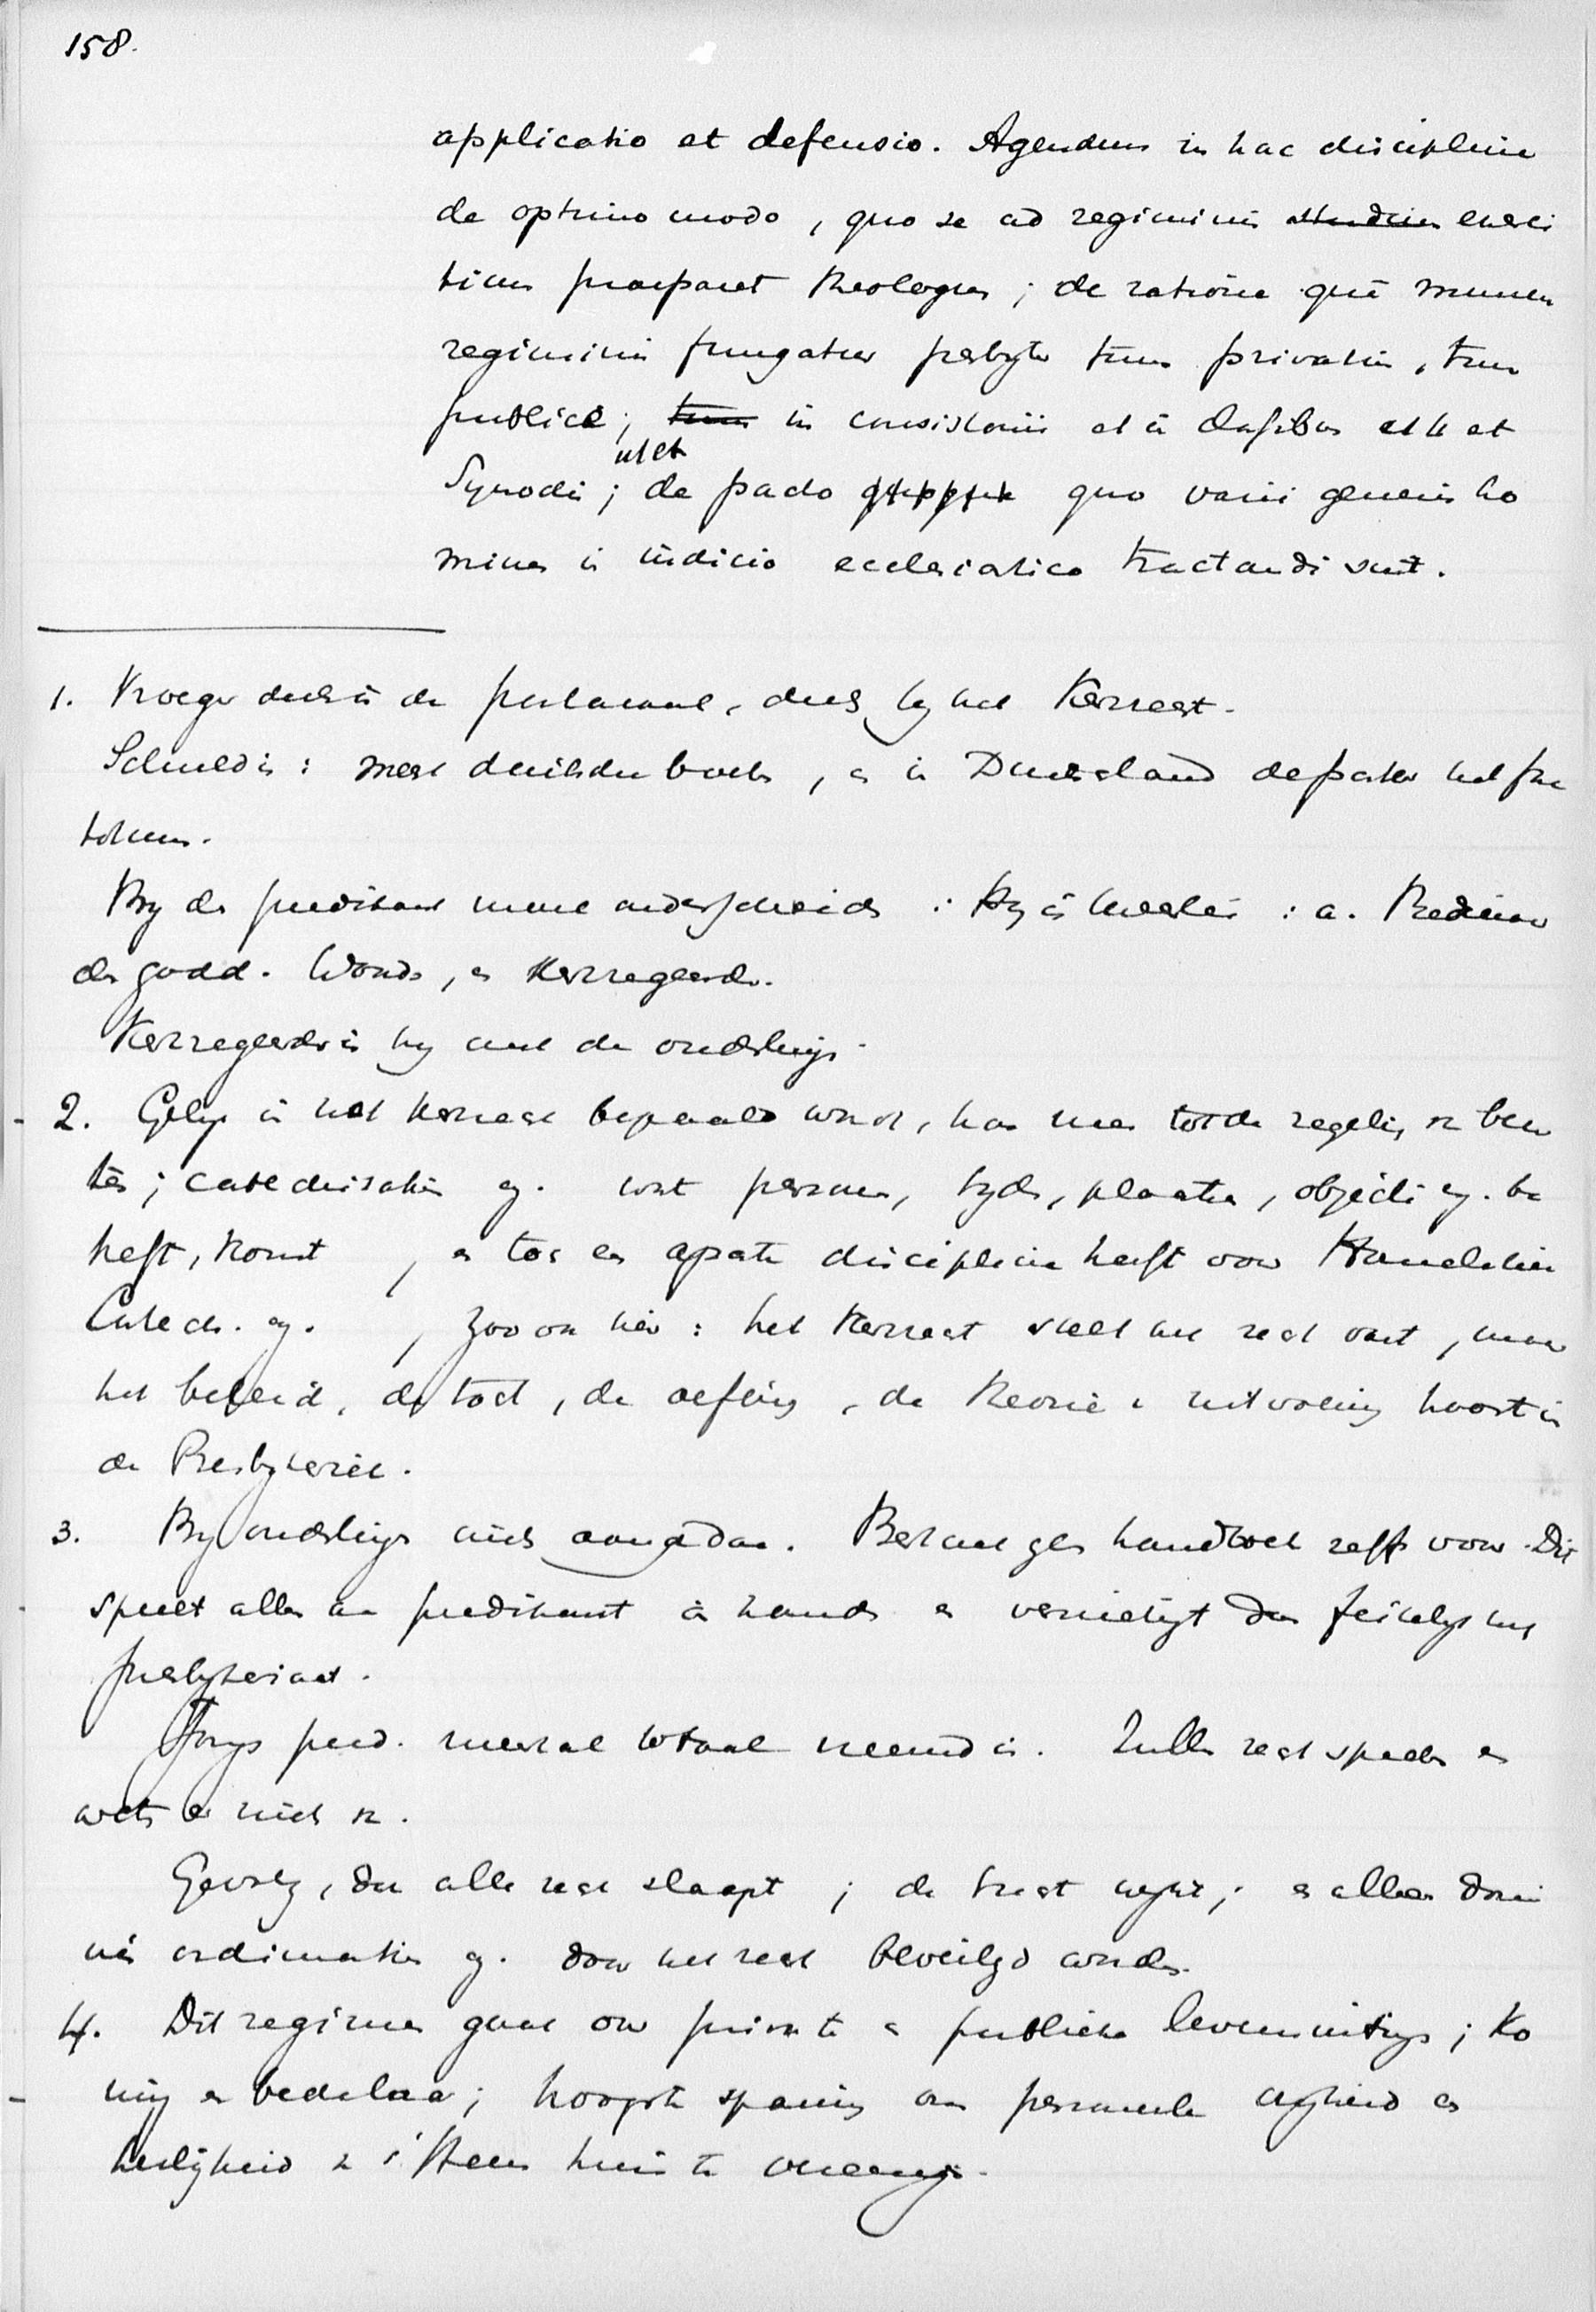 158.
applicatio et defensio. Agendum in hac disciplina
de optimo modo, quo se ad regiminis exerci
tium praeparet theologus; de ratione quā munere
regiminis fungatur presbyter tum privatim, tum
publice; tum in consistoriis et in Classibus et
ut et
Synodis; de pacto quo varii generis ho
mines in iudicio ecclesiastico tractandi sunt.
1. Vroeger deels in de pastoraal, deels by het Kerkrecht.
Schuld is: meest duitsche boeken, en in Duitschland de pastor het fac
totum.
By de predikant moet onderscheiden: Hy is tweeërlei: a. Bedienaar
des godd. Woords, en Kerkregeerder.
Kerkregeerder is hy met de ouderlingen.
2. Gelyk in het Kerkrecht bepaald wordt, hoe men tot de regeling
; catechisatie ez. wat personen, tyden, plaatsen, objecten ez. be
treft, komt, en toch een aparte discipline heeft voor Homiletiek
Catech. ez., zoo ook hier: het Kerkrecht stelt het recht vast, maar
het beleid, de tact, de oefening, de theorie en uitvoering hoort in
de Presbyteriek.
3. By ouderlingen niets aan gedaan. Bestaat geen handboek zelfs voor. Dit
speelt alles den predikant in handen en vernietigt dan feitelyk het
presbyteriaat.
Jonge pred. meestal totaal vreemd in. Zullen recht spreken en
weten er niets van.
Gevolg, dat alle recht slaapt; de tucht wykt; en alleen
ordinantien ez. door het recht beveiligd worden.
4. Dit regimen gaat over private en publieke levensuitingen; Ko
ning en bedelaar; hoogste spanning van personeele vryheid en
heiligheid van 's Heeren huis te